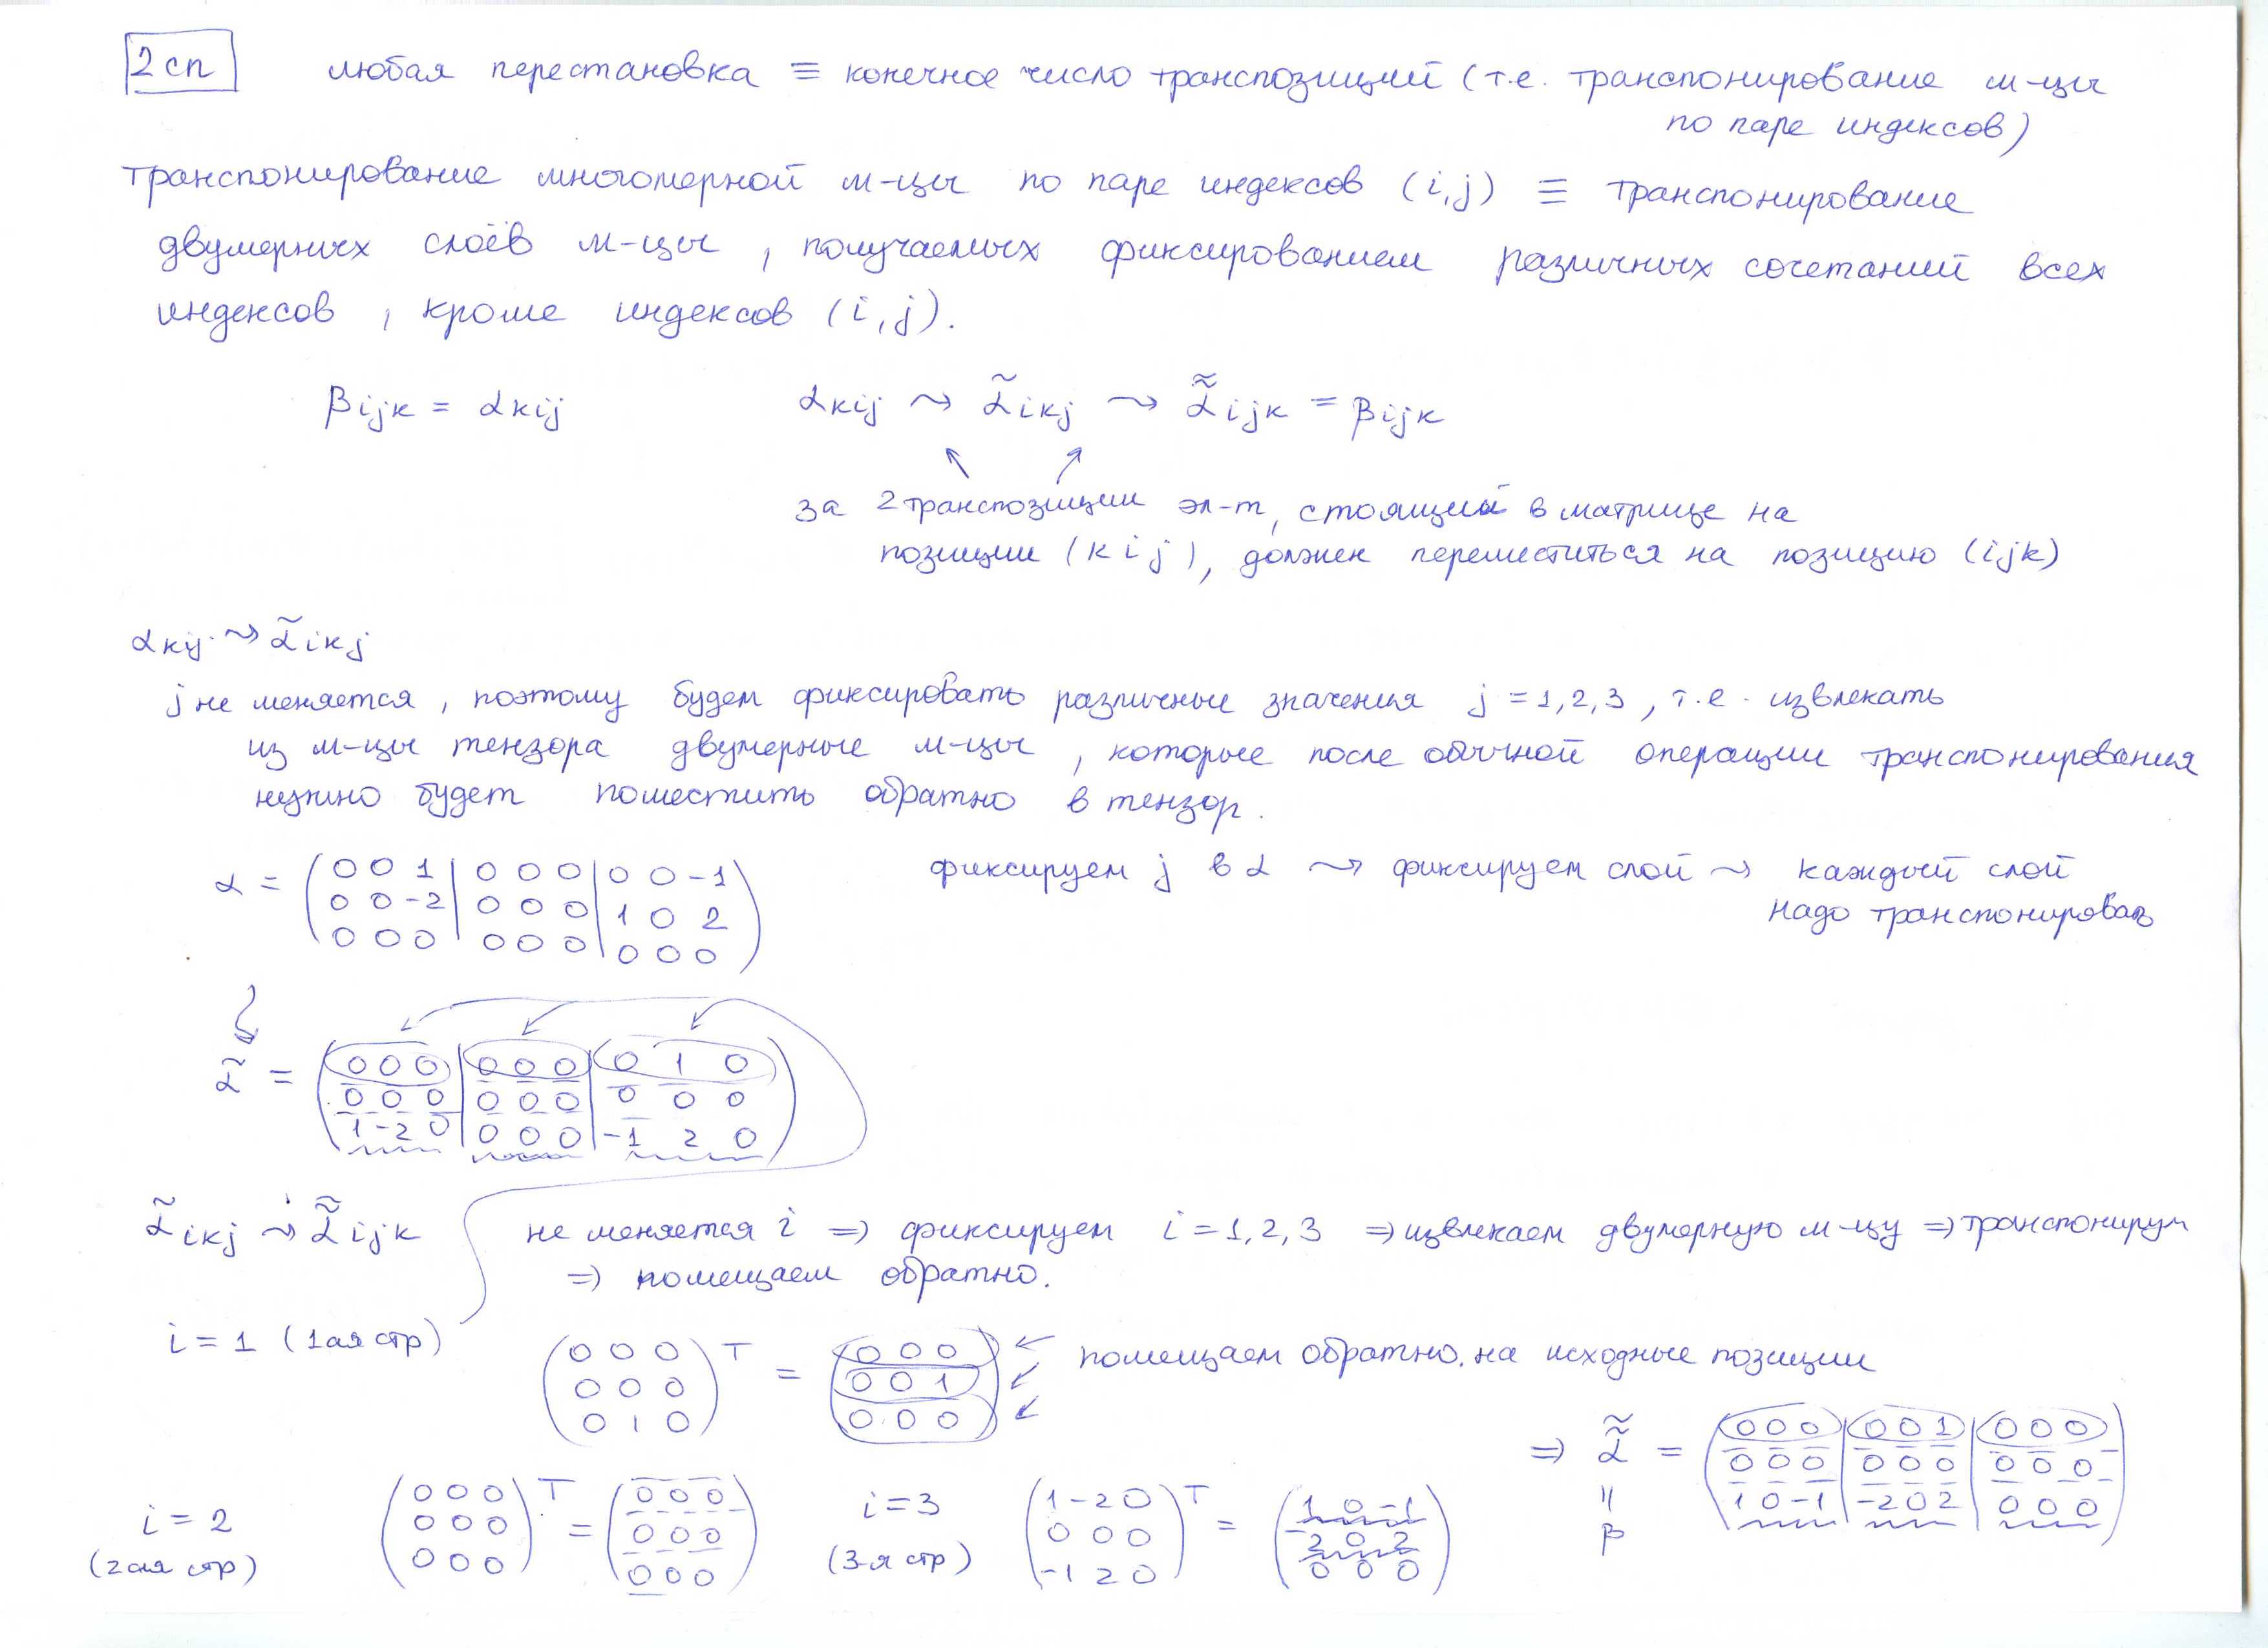 2 сп
любая перестановка ≡ конечное число транспозиций (т.е. транспонирование м-цы
по паре индексов)
транспонирование многомерной м-цы по паре индексов (i,j) ≡ транспонирование
двумерных слоёв м-цы, получаемых фиксированием различных сочетаний всех
индексов, кроме индексов (i,j).
βijk = αkij
αkij ⤳ α̃ikj ⤳ α̃̃ijk = βijk
за 2 транспозиции эл-т, стоящий в матрице на
позиции (kij), должен переместиться на позицию (ijk)
αkij ⤳ α̃ikj
j не меняется, поэтому будем фиксировать различные значения j = 1,2,3, т.е. извлекать
из м-цы тензора двумерные м-цы, которые после обычной операции транспонирования
нужно будет поместить обратно в тензор.
фиксируем j в α ⤳ фиксируем слой ⤳ каждый слой
надо транспонировать
α = ( 0 0 1 | 0 0 0 | 0 0 -1
0 0 -2 | 0 0 0 | 1 0 2
0 0 0 | 0 0 0 | 0 0 0 )
α̃ = ( 0 0 0 | 0 0 0 | 0 1 0
0 0 0 | 0 0 0 | 0 0 0
1 -2 0 | 0 0 0 | -1 2 0 )
α̃ikj ⤳ α̃̃ijk
не меняется i ⇒ фиксируем i = 1,2,3 ⇒ извлекаем двумерную м-цу ⇒ транспонируем
⇒ помещаем обратно.
i = 1 (1ая стр)
( 0 0 0
0 0 0
0 1 0 )ᵀ = ( 0 0 0
0 0 1
0 0 0 )
← помещаем обратно на исходные позиции
i = 2
(2ая стр)
( 0 0 0
0 0 0
0 0 0 )ᵀ = ( 0 0 0
0 0 0
0 0 0 )
i = 3
(3-я стр)
( 1 -2 0
0 0 0
-1 2 0 )ᵀ = ( 1 0 -1
-2 0 2
0 0 0 )
⇒ α̃̃ = ( 0 0 0 | 0 0 1 | 0 0 0
0 0 0 | 0 0 0 | 0 0 0
1 0 -1 | -2 0 2 | 0 0 0 )
=
β